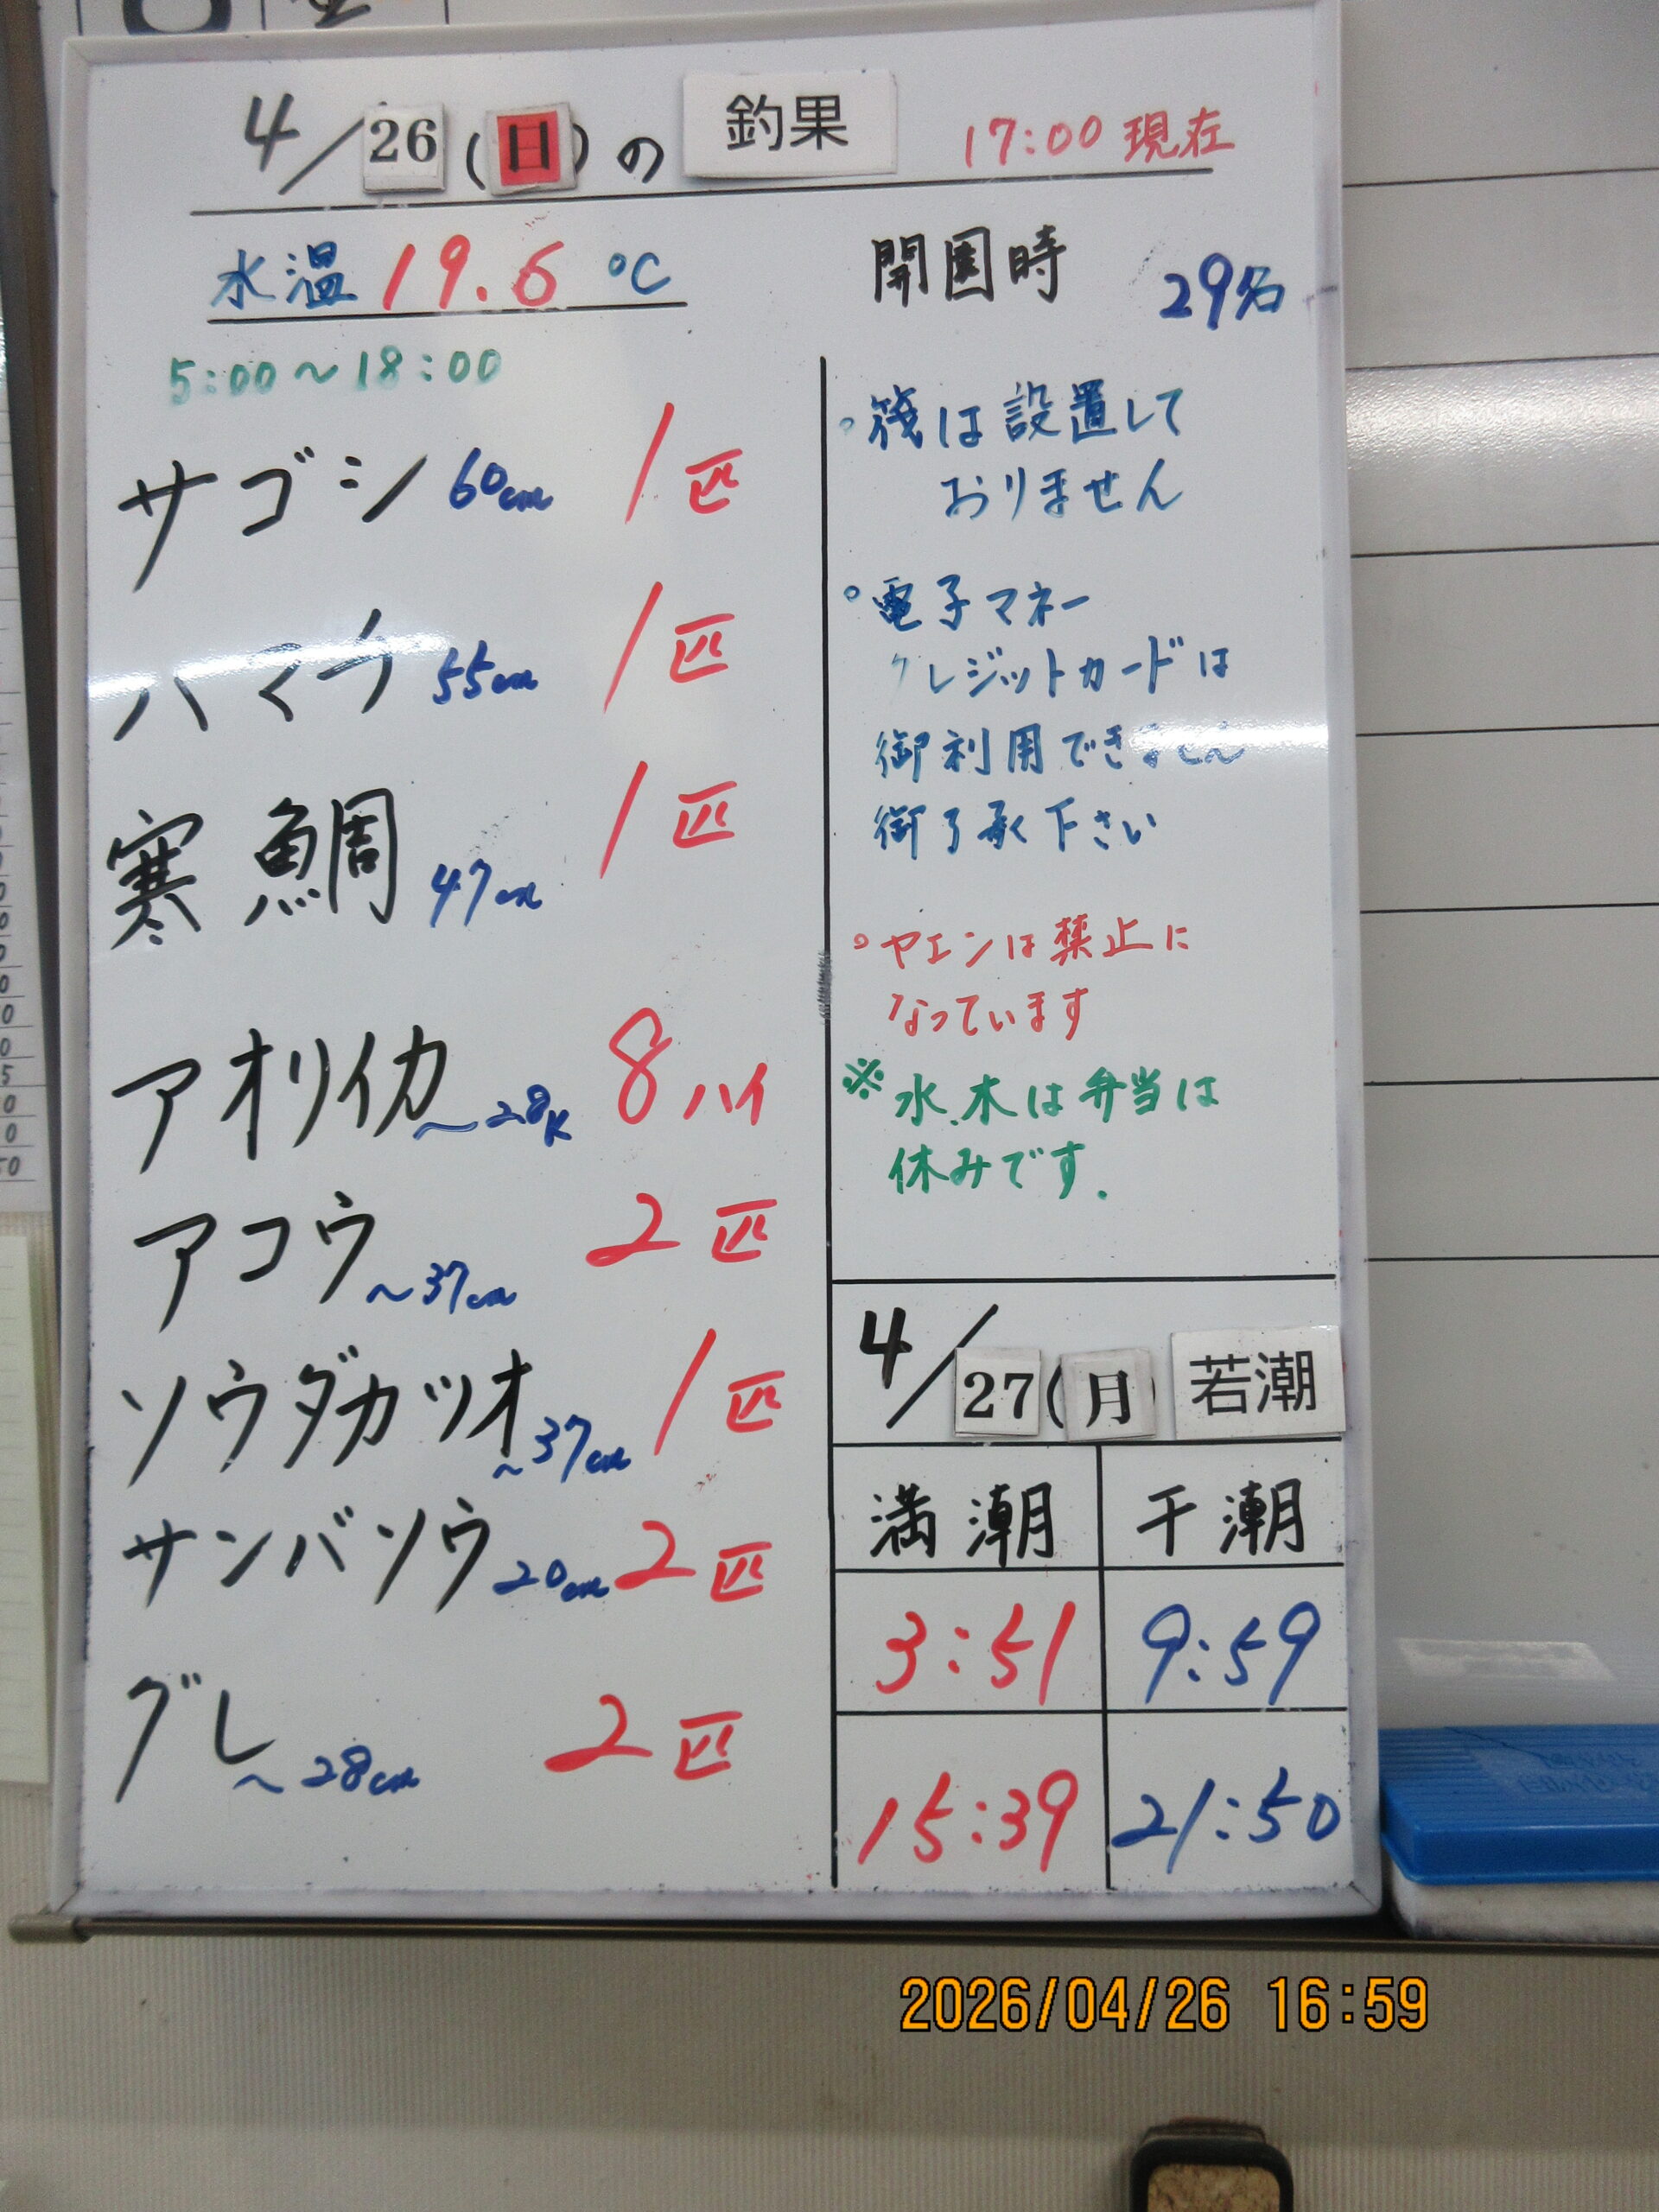 4/26(日)の 釣果 17:00 現在
水温 19.6 ℃
開園時 29名
5:00〜18:00
サゴシ 60cm 1匹
ハマチ 55cm 1匹
寒鯛 47cm 1匹
アオリイカ 〜2.8K 8ハイ
アコウ 〜37cm 2匹
ソウダカツオ 〜37cm 1匹
サンバソウ 20cm 2匹
グレ 〜28cm 2匹
。筏は設置して
おりません
。電子マネー
クレジットカードは
御利用できません
御了承下さい
。ヤエンは禁止に
なっています
※水.木は弁当は
休みです.
4/27(月) 若潮
満潮 干潮
3:51 9:59
15:39 21:50
2026/04/26 16:59